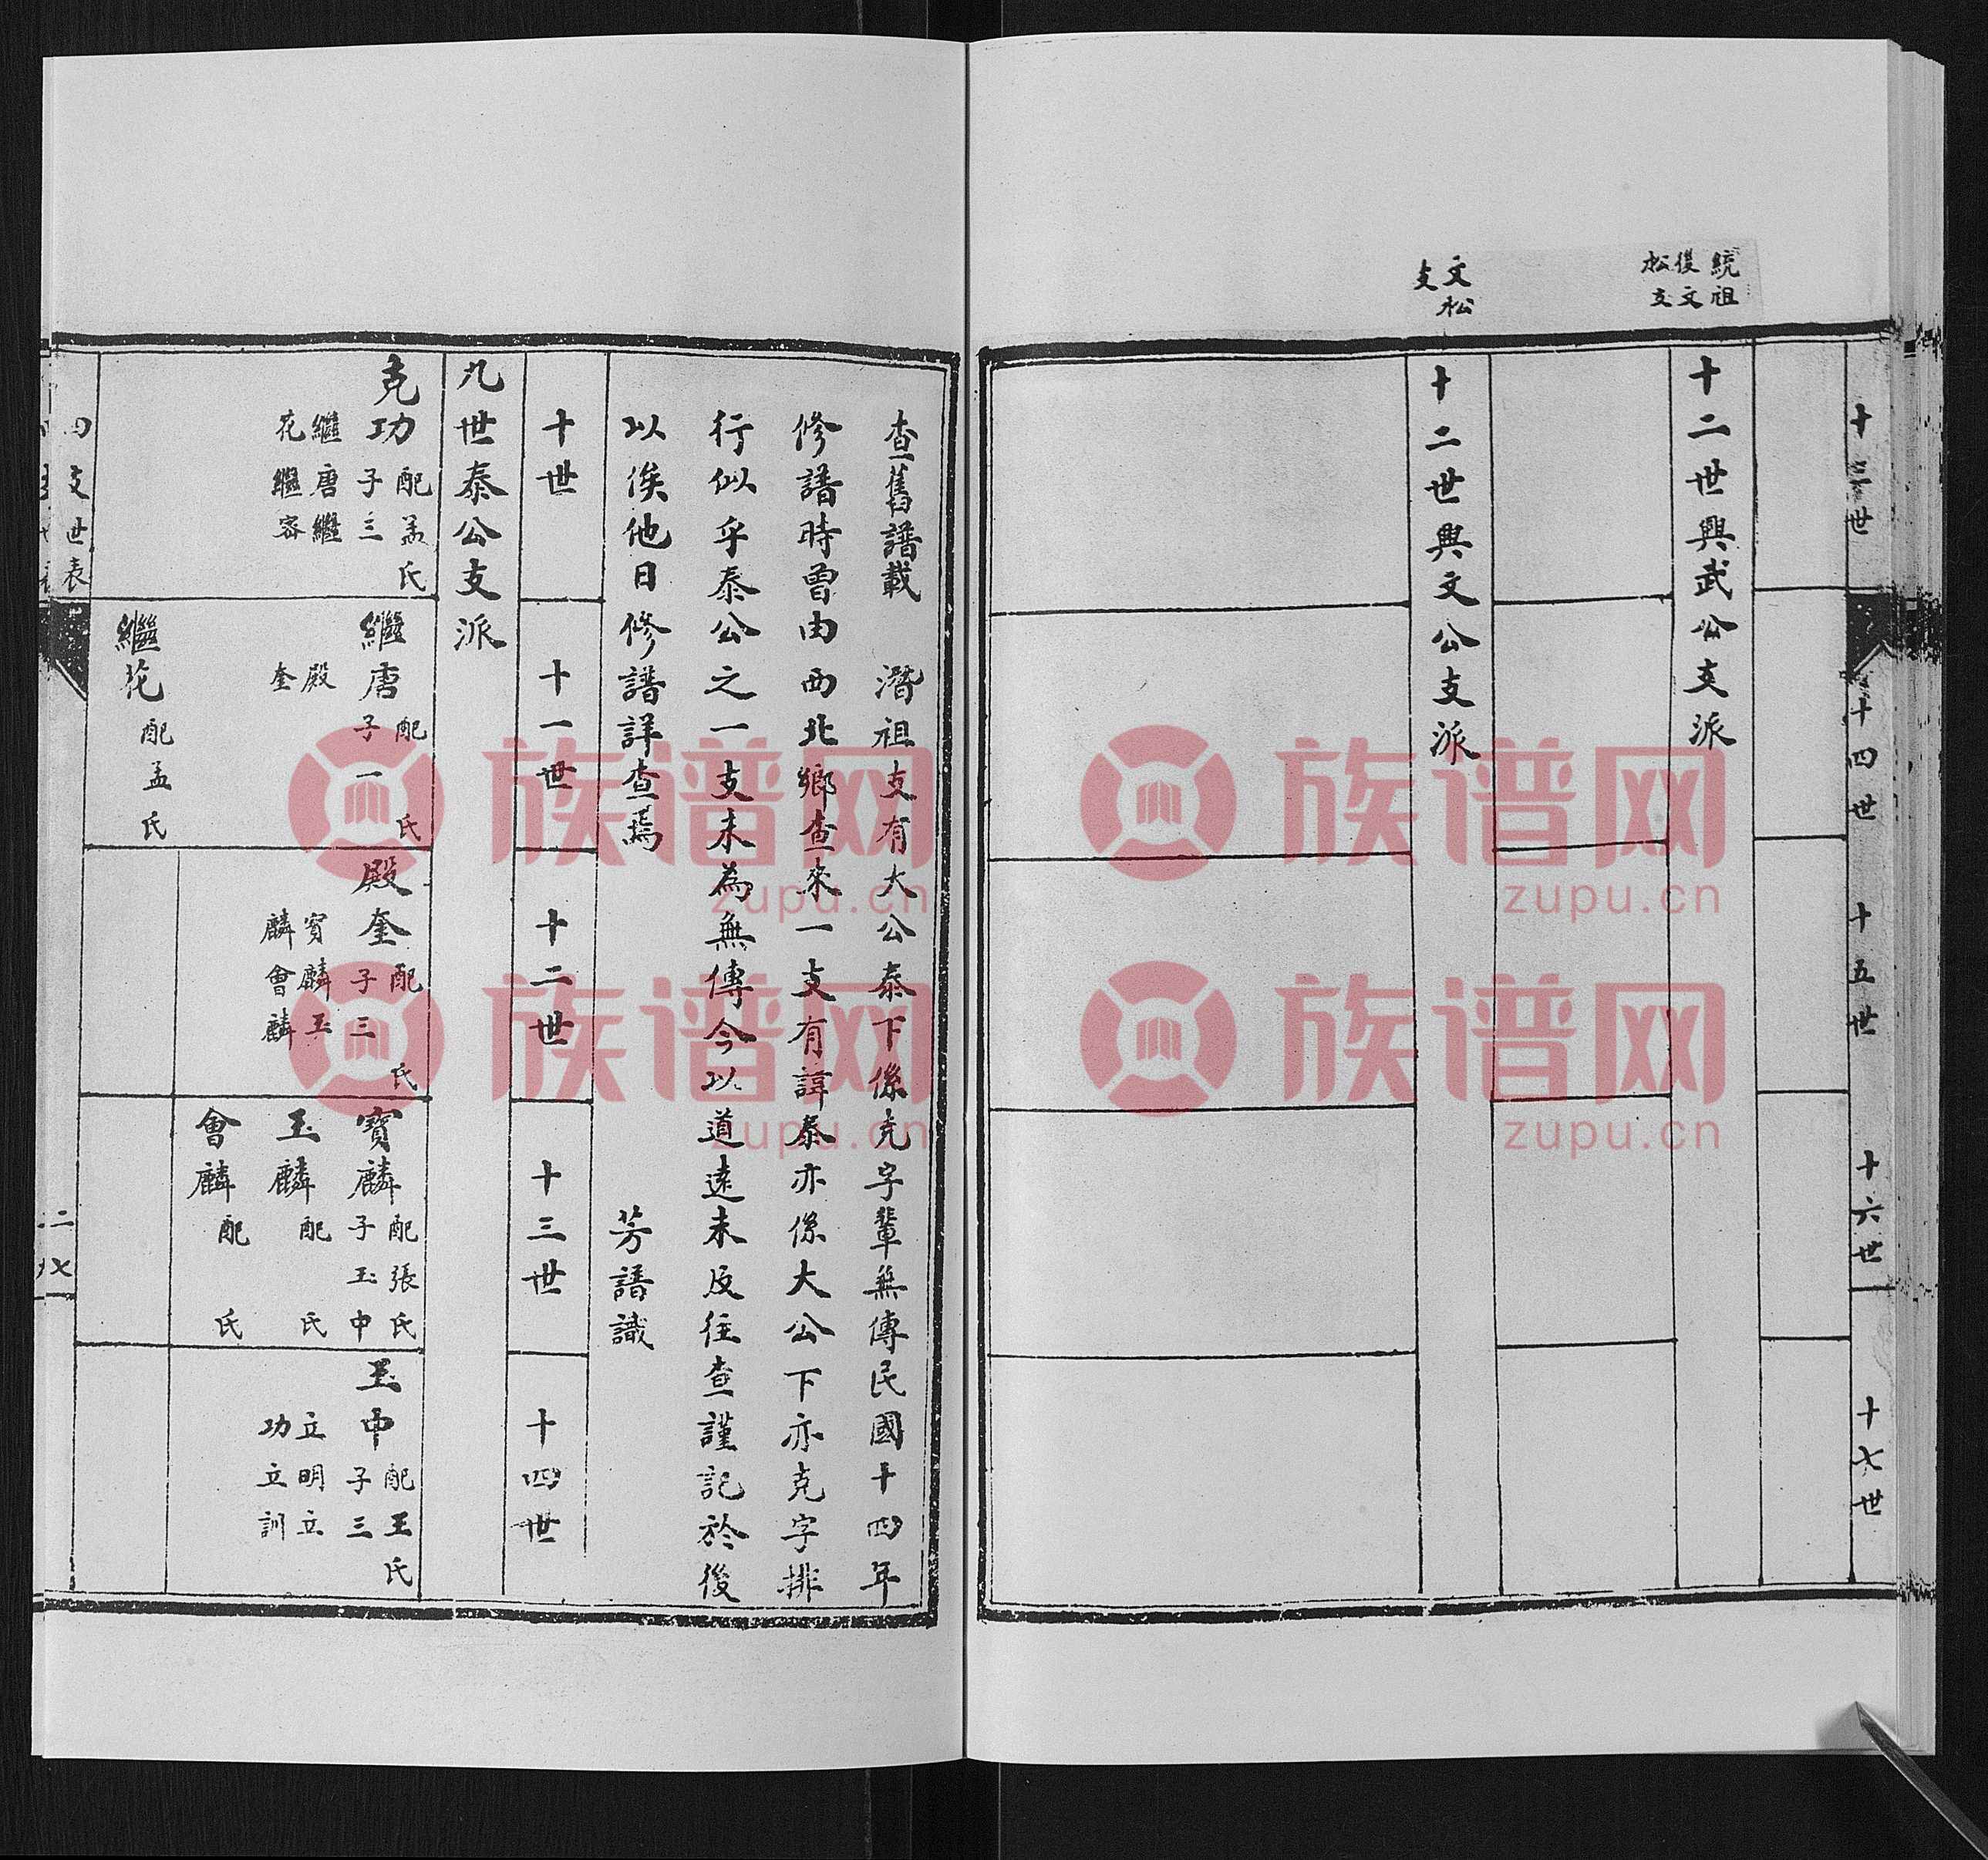 統祖
後文
松支
文松
支
十三世
十四世
十五世
十六世
十七世
十二世興武公支派
十二世興文公支派
查舊譜載 潛祖支有大公泰下係克字輩無傳民國十四年
修譜時曾由西北鄉查來一支有諱泰亦係大公下亦克字排
行似乎泰公之一支未為無傳今以道遠未及往查謹記於後
以俟他日修譜詳查焉 芳譜識
十世
十一世
十二世
十三世
十四世
九世泰公支派
克功 配孟氏
子三
繼唐繼
花繼容
繼唐 配 氏
子一
殿
奎
繼花 配孟氏
殿奎 配 氏
子三
寶麟玉
麟會麟
寶麟 配張氏
子玉申
玉麟 配 氏
會麟 配 氏
玉申 配王氏
子三
立明立
功立訓
四支世表
二七
族谱网
zupu.cn
族谱网
zupu.cn
族谱网
zupu.cn
族谱网
zupu.cn